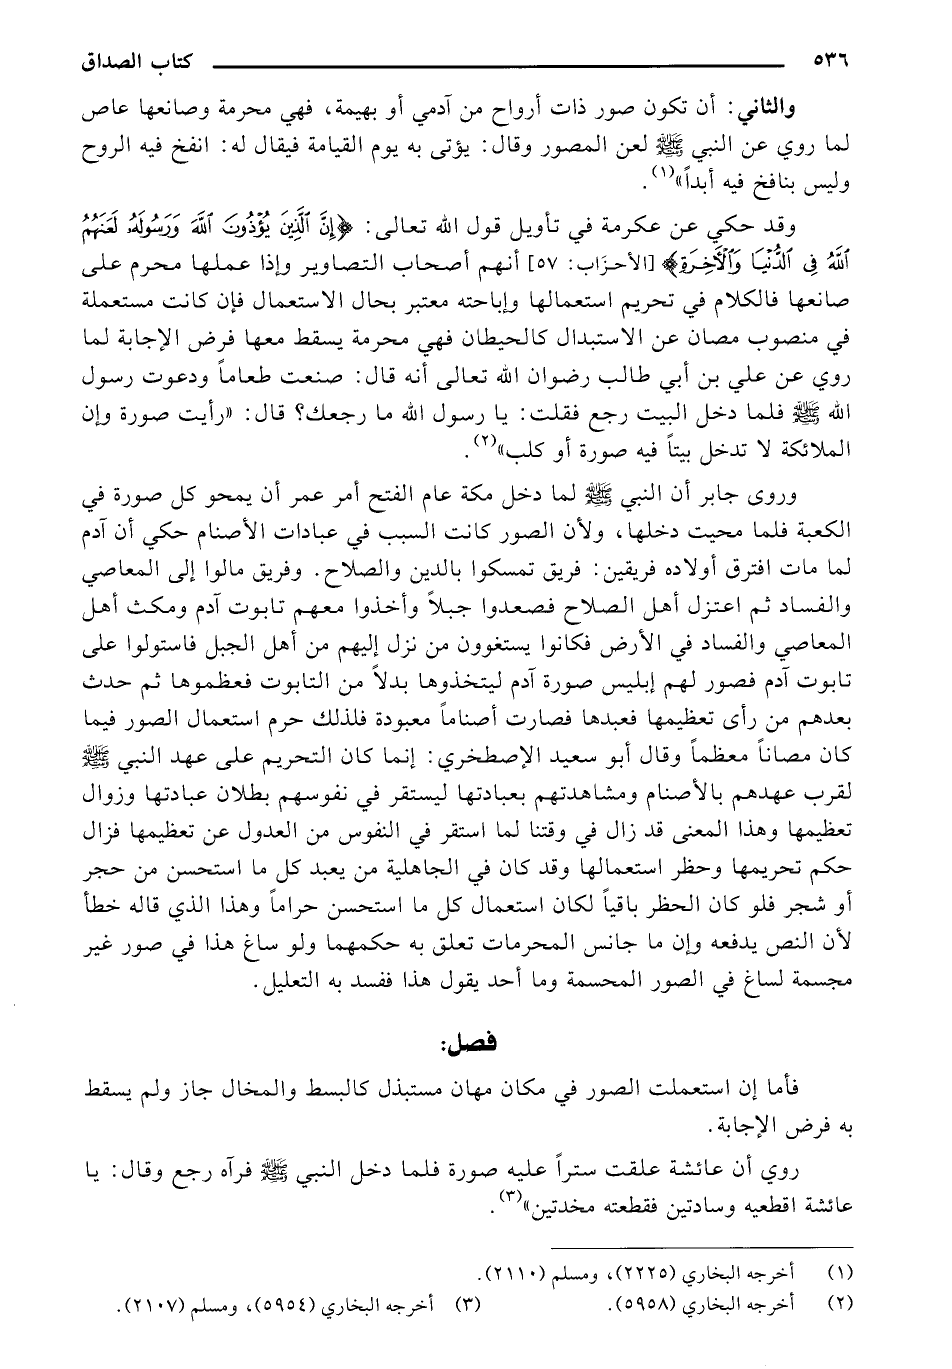 ٥٣٦ كتاب الصداق
والثاني: أن تكون صور ذات أرواح من آدمي أو بهيمة، فهي محرمة وصانعها عاص
لما روي عن النبي ﷺ لعن المصور وقال: يؤتى به يوم القيامة فيقال له: انفخ فيه الروح
وليس بنافخ فيه أبداً»(١).
وقد حكي عن عكرمة في تأويل قول الله تعالى: ﴿إِنَّ ٱلَّذِينَ يُؤْذُونَ ٱللَّهَ وَرَسُولَهُ لَعَنَهُمُ
ٱللَّهُ فِي ٱلدُّنْيَا وَٱلْآخِرَةِ﴾ [الأحزاب: ٥٧] أنهم أصحاب التصاوير وإذا عملها محرم على
صانعها فالكلام في تحريم استعمالها وإباحته معتبر بحال الاستعمال فإن كانت مستعملة
في منصوب مصان عن الاستبدال كالحيطان فهي محرمة يسقط معها فرض الإجابة لما
روي عن علي بن أبي طالب رضوان الله تعالى أنه قال: صنعت طعاماً ودعوت رسول
الله ﷺ فلما دخل البيت رجع فقلت: يا رسول الله ما رجعك؟ قال: «رأيت صورة وإن
الملائكة لا تدخل بيتاً فيه صورة أو كلب»(٢).
وروى جابر أن النبي ﷺ لما دخل مكة عام الفتح أمر عمر أن يمحو كل صورة في
الكعبة فلما محيت دخلها، ولأن الصور كانت السبب في عبادات الأصنام حكي أن آدم
لما مات افترق أولاده فريقين: فريق تمسكوا بالدين والصلاح. وفريق مالوا إلى المعاصي
والفساد ثم اعتزل أهل الصلاح فصعدوا جبلاً وأخذوا معهم تابوت آدم ومكث أهل
المعاصي والفساد في الأرض فكانوا يستغوون من نزل إليهم من أهل الجبل فاستولوا على
تابوت آدم فصور لهم إبليس صورة آدم ليتخذوها بدلاً من التابوت فعظموها ثم حدث
بعدهم من رأى تعظيمها فعبدها فصارت أصناماً معبودة فلذلك حرم استعمال الصور فيما
كان مصاناً معظماً وقال أبو سعيد الإصطخري: إنما كان التحريم على عهد النبي ﷺ
لقرب عهدهم بالأصنام ومشاهدتهم بعبادتها ليستقر في نفوسهم بطلان عبادتها وزوال
تعظيمها وهذا المعنى قد زال في وقتنا لما استقر في النفوس من العدول عن تعظيمها فزال
حكم تحريمها وحظر استعمالها وقد كان في الجاهلية من يعبد كل ما استحسن من حجر
أو شجر فلو كان الحظر باقياً لكان استعمال كل ما استحسن حراماً وهذا الذي قاله خطأ
لأن النص يدفعه وإن ما جانس المحرمات تعلق به حكمهما ولو ساغ هذا في صور غير
مجسمة لساغ في الصور المحسمة وما أحد يقول هذا ففسد به التعليل.
فصل:
فأما إن استعملت الصور في مكان مهان مستبذل كالبسط والمخال جاز ولم يسقط
به فرض الإجابة.
روي أن عائشة علقت ستراً عليه صورة فلما دخل النبي ﷺ فرآه رجع وقال: يا
عائشة اقطعيه وسادتين فقطعته مخدتين»(٣).
(١) أخرجه البخاري (٢٢٢٥)، ومسلم (٢١١٠).
(٢) أخرجه البخاري (٥٩٥٨). (٣) أخرجه البخاري (٥٩٥٤)، ومسلم (٢١٠٧).